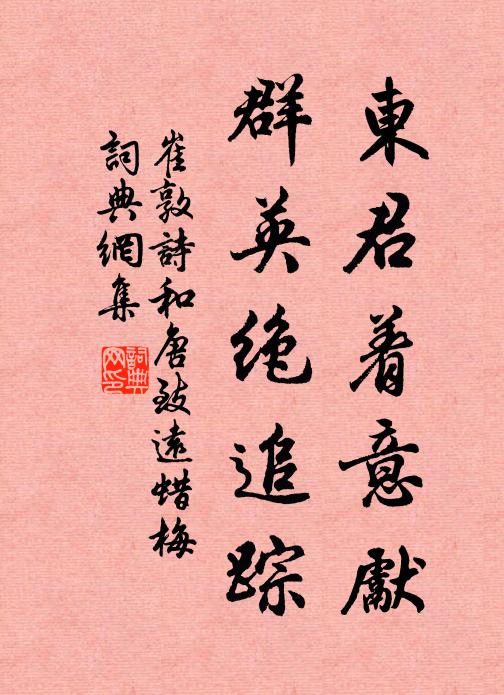 東君着意獻
群英絶追踪
崔敦詩和唐致遠蜡梅
詞典網集
詞典网印